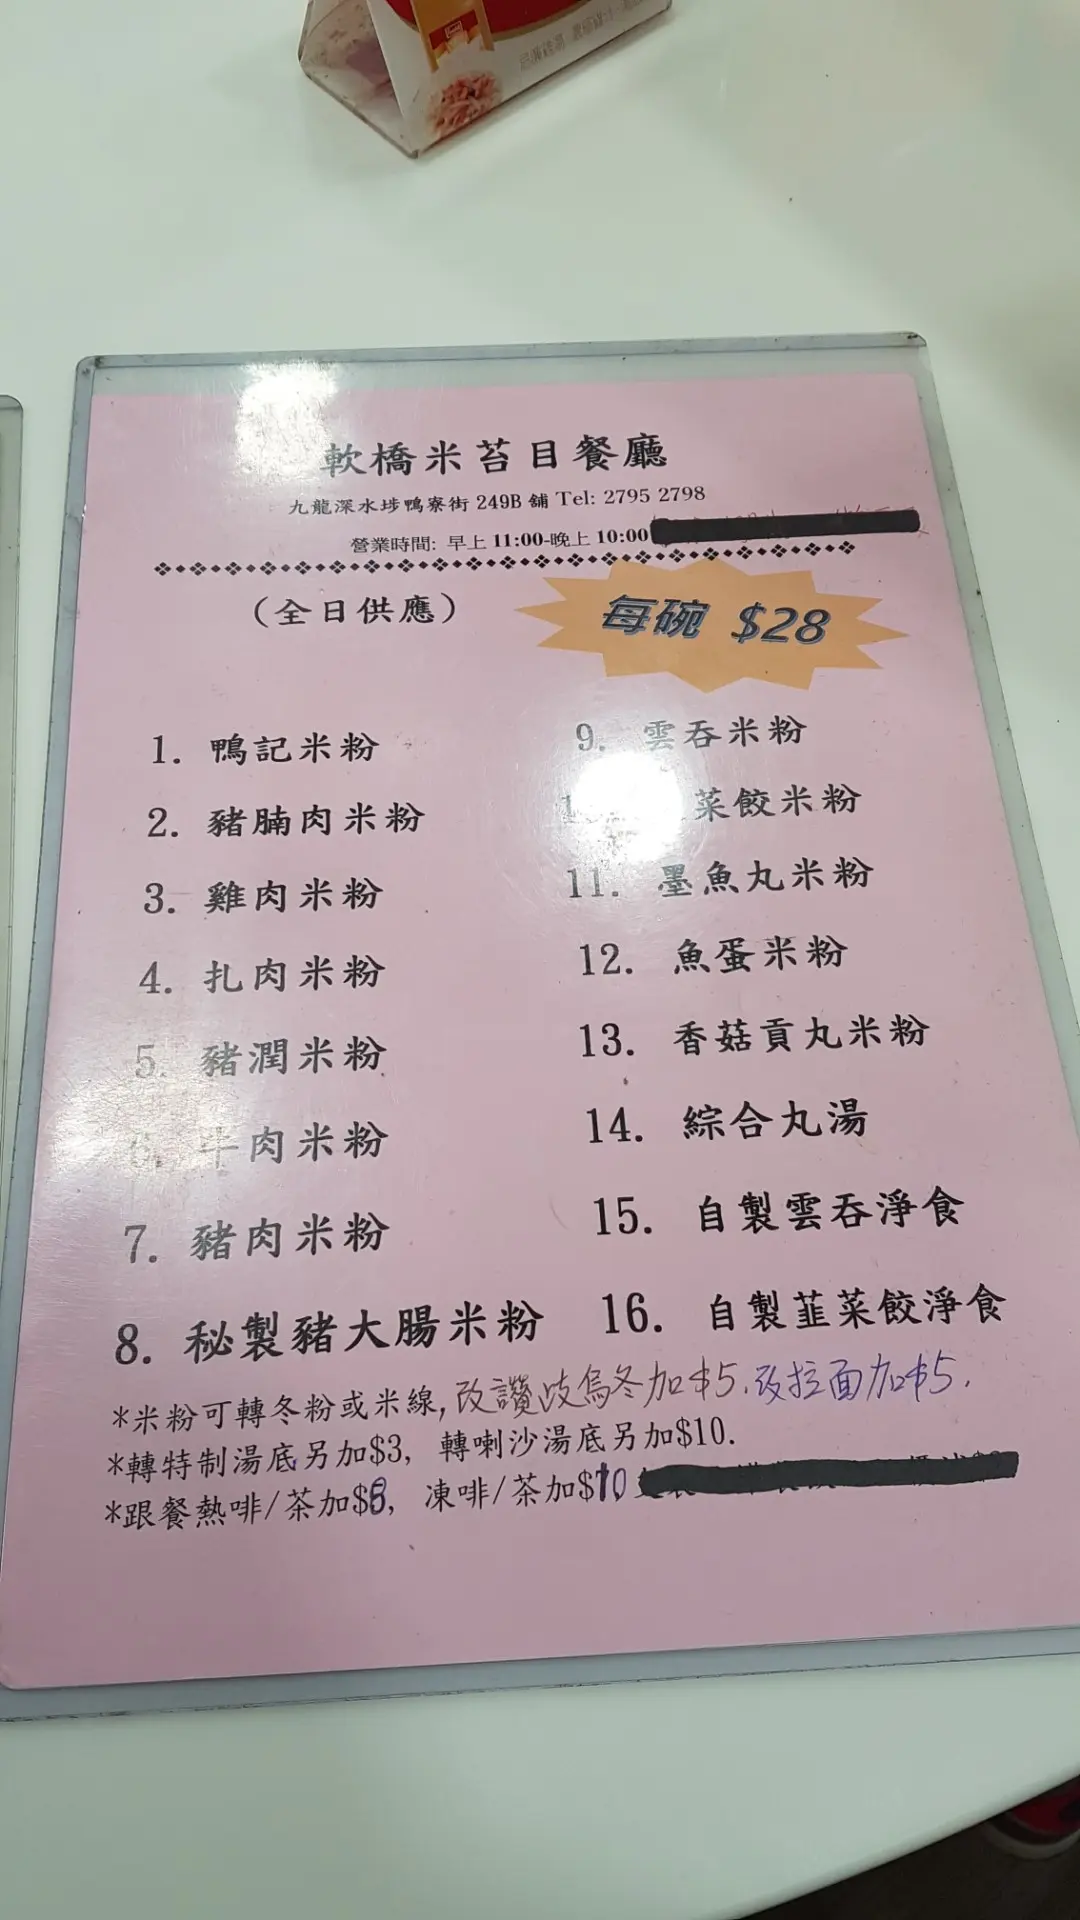 軟橋米苔目餐廳
九龍深水埗鴨寮街 249B 舖 Tel: 2795 2798
營業時間: 早上 11:00-晚上 10:00
(全日供應)
每碗 $28
1. 鴨記米粉
2. 豬腩肉米粉
3. 雞肉米粉
4. 扎肉米粉
5. 豬潤米粉
6. 牛肉米粉
7. 豬肉米粉
8. 秘製豬大腸米粉
9. 雲吞米粉
菜餃米粉
11. 墨魚丸米粉
12. 魚蛋米粉
13. 香菇貢丸米粉
14. 綜合丸湯
15. 自製雲吞淨食
16. 自製韮菜餃淨食
*米粉可轉冬粉或米線, 改讚岐烏冬加$5. 改拉面加$5.
*轉特制湯底另加$3, 轉喇沙湯底另加$10.
*跟餐熱啡/茶加$8, 凍啡/茶加$10